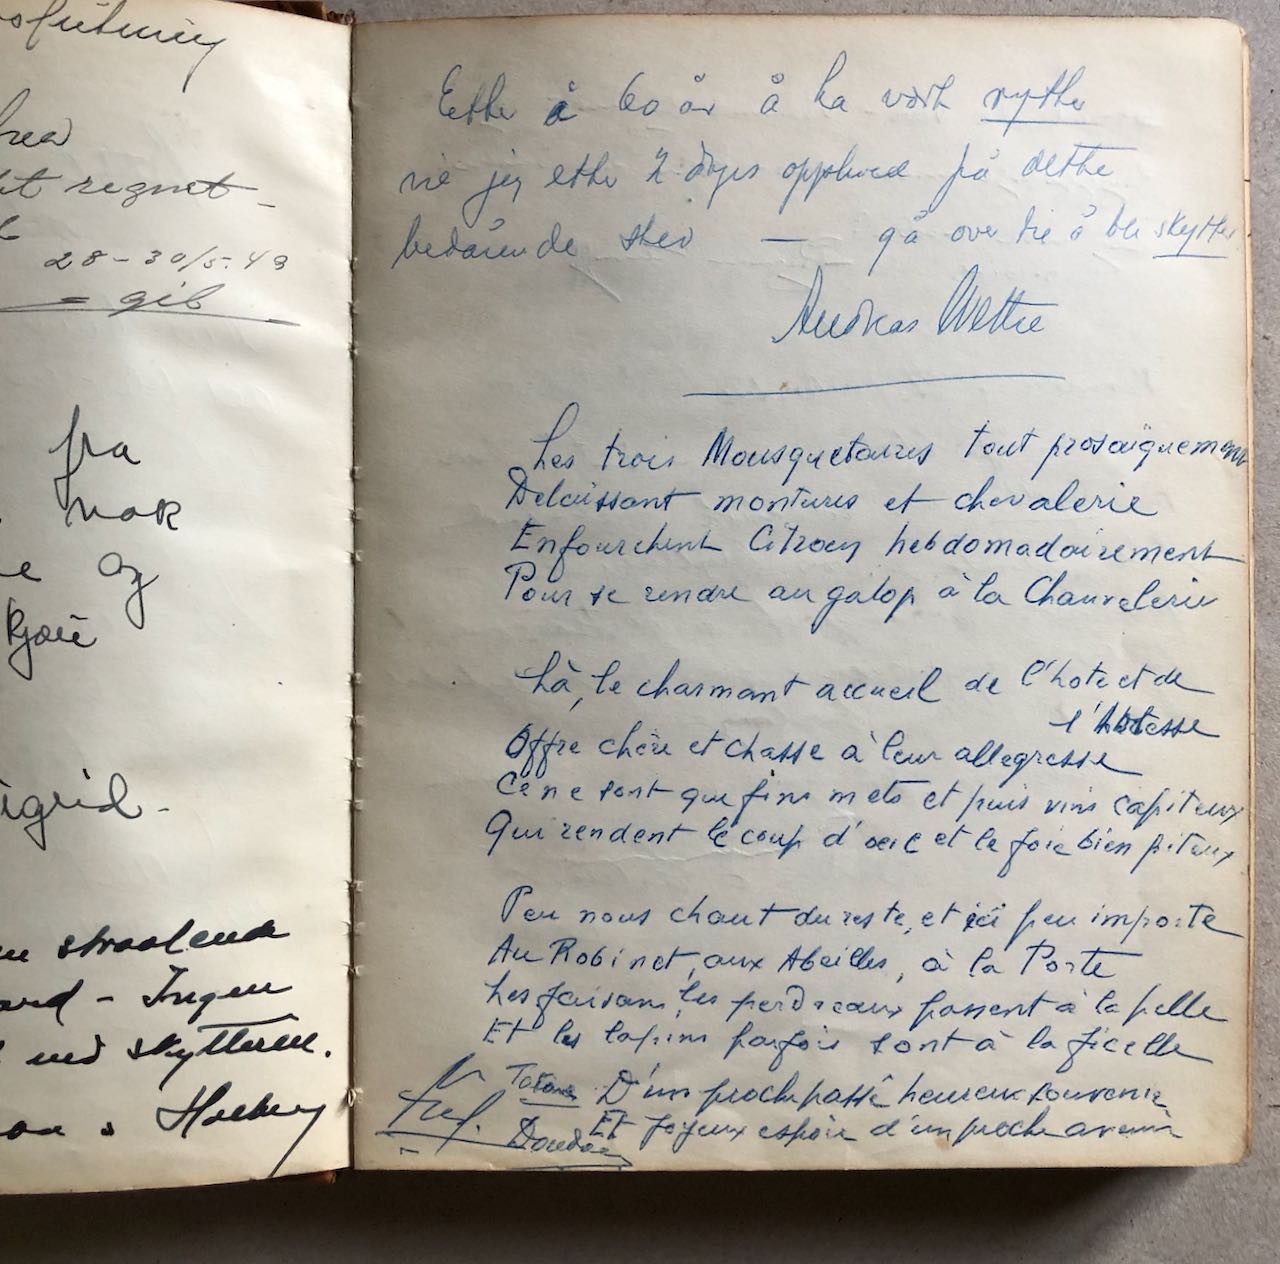 hea
regnet -
28-30/5.49
= gib
fra
nok
og
igrid -
straalende
- Ingen
ved skytteren.
Etter å 60 år å ha vært rytter
vil jeg etter 2 døgns opphold på dette
bedårende sted — gå over til å ble skytter
Andreas
Les trois Mousquetaires tout prosaïquement
Delaissant montures et chevalerie
Enfourchent Citroen hebdomadairement
Pour se rendre au galop à la Chauvelerie
Là, le charmant accueil de l'hote et de
l'hotesse
Offre chère et chasse à leur allegresse
Ce ne sont que fins mets et puis vins capiteux
Qui rendent le coup d'oeil et le foie bien piteux
Peu nous chaut du reste, et ici peu importe
Au Robinet, aux Abeilles, à la Porte
Les faisans, les perdreaux passent à la pelle
Et les lapins parfois sont à la ficelle
D'un proche passé heureux souvenir
Et joyeux espoir d'un proche avenir